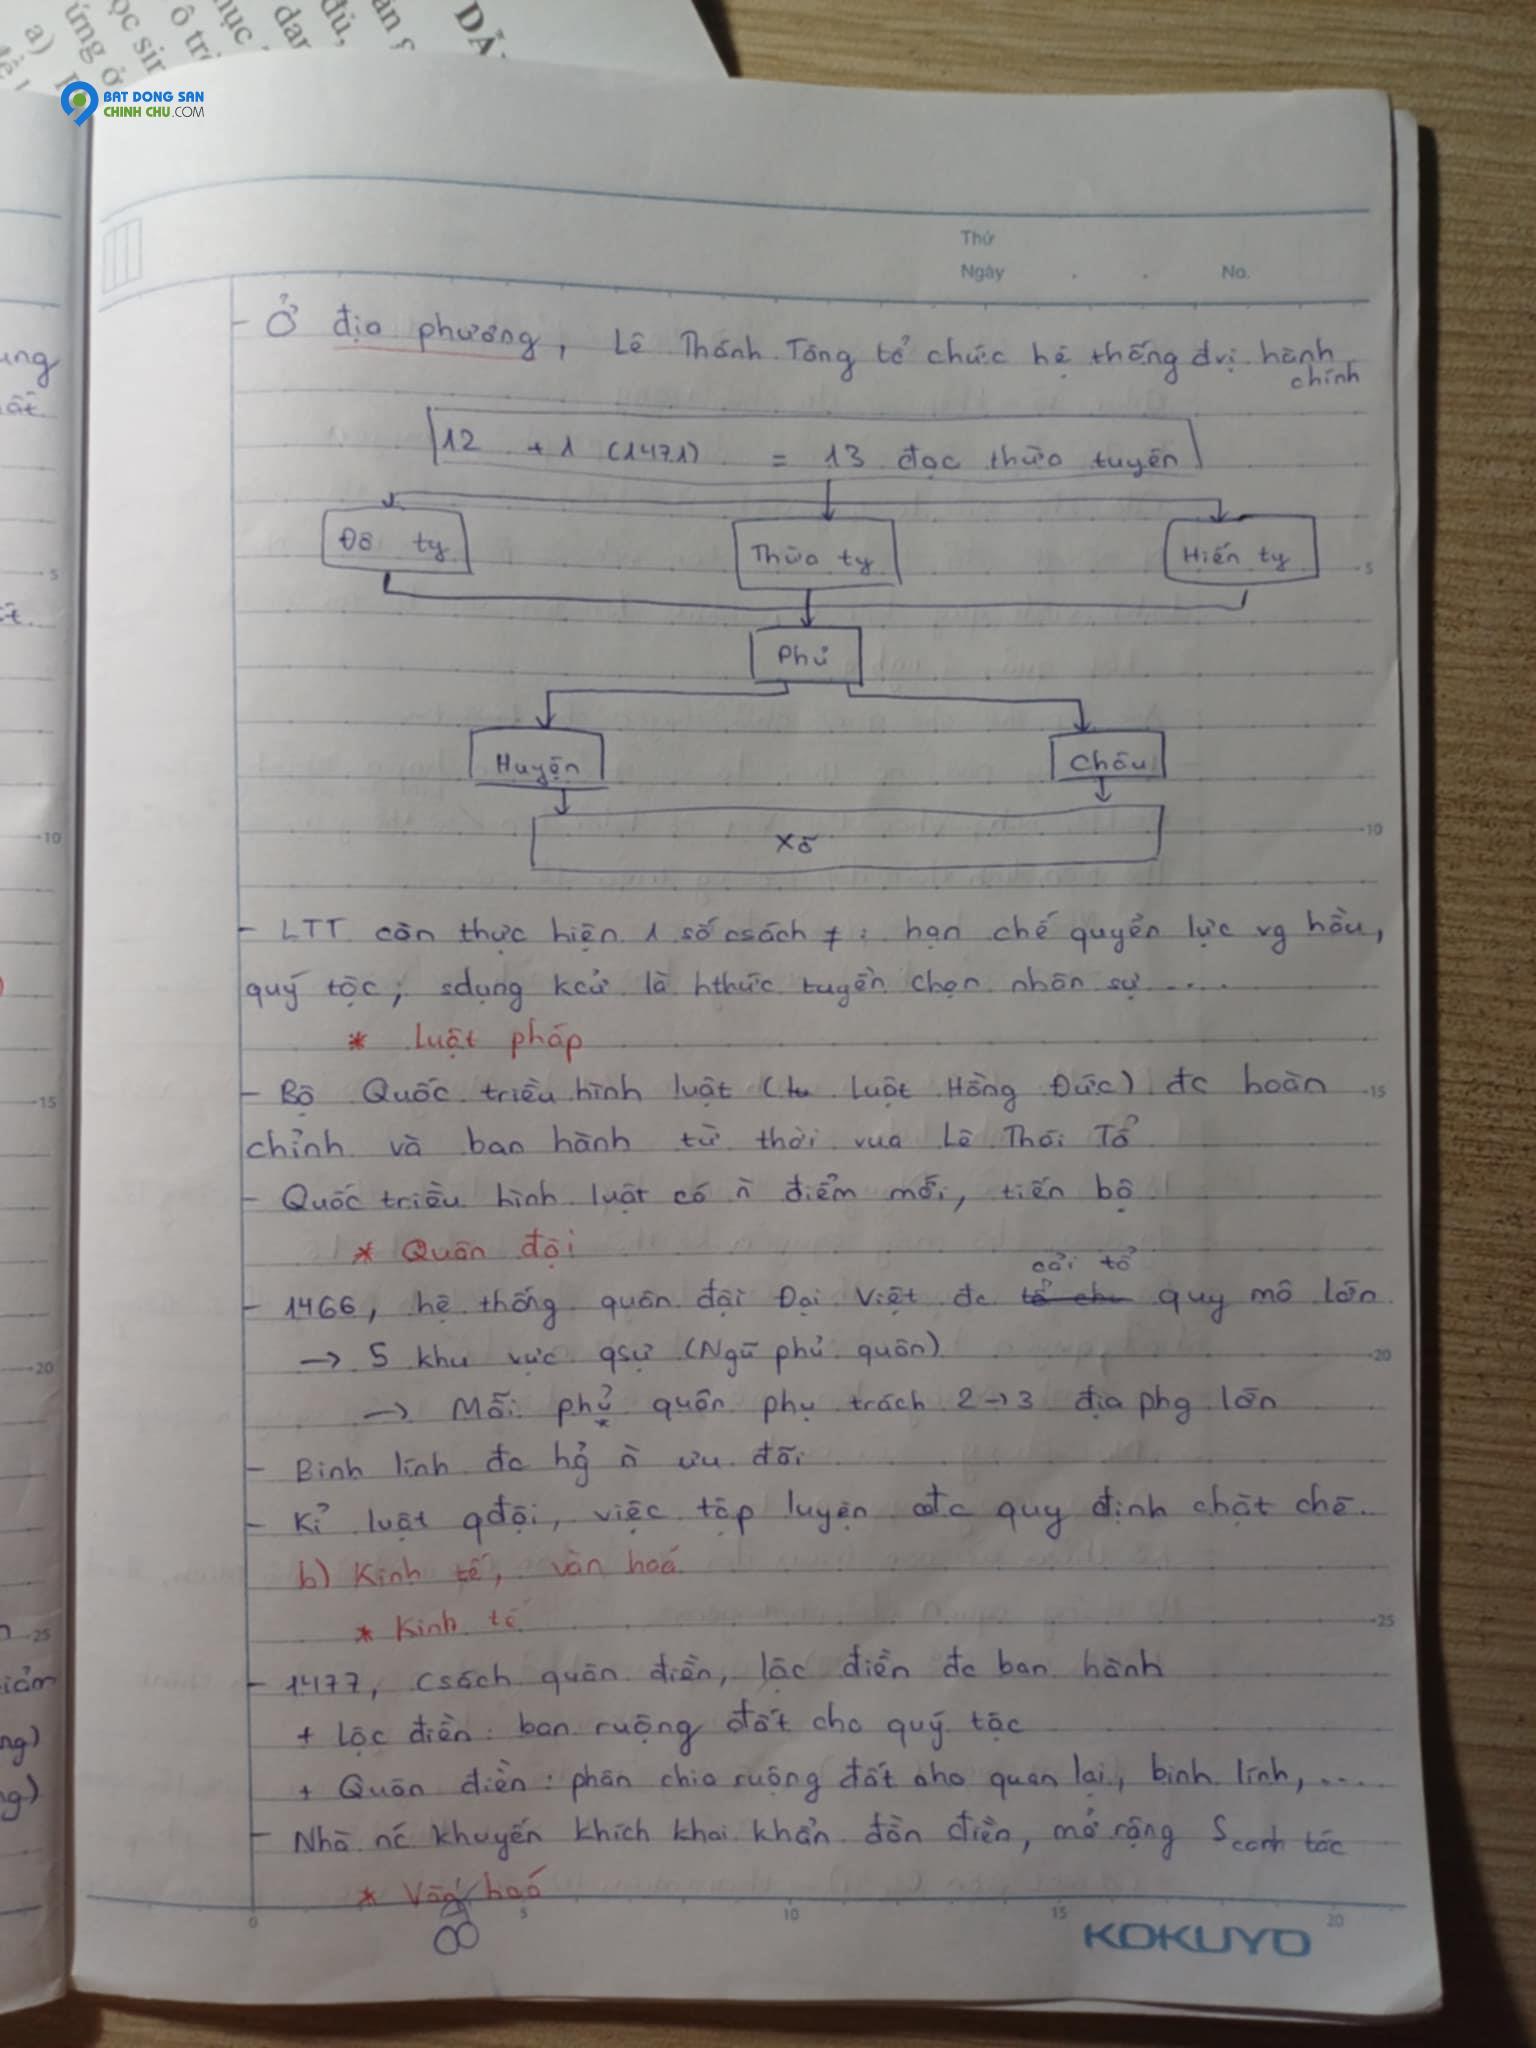 DẪ
BAT DONG SAN
CHINH CHU.COM
Thứ
Ngày . . No.
- Ở địa phương, Lê Thánh Tông tổ chức hệ thống đvị hành
chính
12 + 1 (1471) = 13 đạo thừa tuyên
Đô ty
Thừa ty
Hiến ty
Phủ
Huyện
Châu
Xã
- LTT còn thực hiện 1 số csách ≠ : hạn chế quyền lực vg hầu,
quý tộc; sdụng kcử là hthức tuyển chọn nhân sự ....
* Luật pháp
- Bộ Quốc triều hình luật (luật Hồng Đức) đc hoàn
chỉnh và ban hành từ thời vua Lê Thái Tổ
- Quốc triều hình luật có ǹ điểm mới, tiến bộ
* Quân đội
cải tổ
- 1466, hệ thống quân đội Đại Việt đc quy mô lớn
→ 5 khu vực qsự (Ngũ phủ quân)
→ Mỗi phủ quân phụ trách 2→3 địa phg lớn
- Binh lính đc hg̉ ǹ ưu đãi
- Kỉ luật qđội, việc tập luyện đc quy định chặt chẽ.
b) Kinh tế, văn hoá
* Kinh tế
- 1477, csách quân điền, lộc điền đc ban hành
+ Lộc điền: ban ruộng đất cho quý tộc
+ Quân điền: phân chia ruộng đất cho quan lại, binh lính, ....
- Nhà nc khuyến khích khai khẩn đồn điền, mở rộng S canh tác
* Văn hoá
0 5 10 15 20
8
KOKUYO